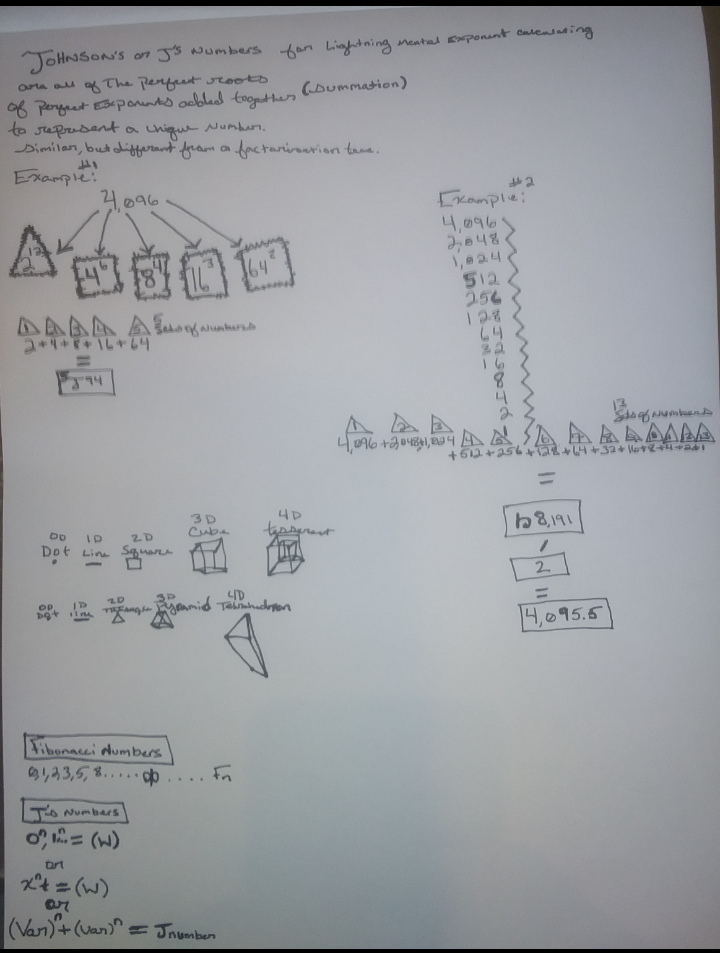 JOHNSON'S or J's Numbers for Lightning mental Exponent calculating
are all of The perfect roots
of perfect Exponents added together (summation)
to represent a unique number.
Similar, but different from a factorization tree.
Example: #1
4,096
2^12 4^6 8^4 16^3 64^2
1 2 3 4 5 5 Sets of Numbers
2+4+8+16+64
=
94
Example: #2
4,096
2,048
1,024
512
256
128
64
32
16
8
4
2
13 Sets of Numbers
1 2 3 4 5 6 7 8
4,096+2,048+1,024
+512+256+128+64+32+16+8+4+2+1
=
8,191
/
2
=
4,095.5
0D 1D 2D 3D 4D
Dot Line Square Cube tesseract
0D 1D 2D 3D 4D
Dot Line Triangle Pyramid Tetrahedron
Fibonacci Numbers
0,1,2,3,5,8..... ..... Fn
J's Numbers
= (W)
or
= (W)
or
(Var)^n+(Var)^n = Jnumber